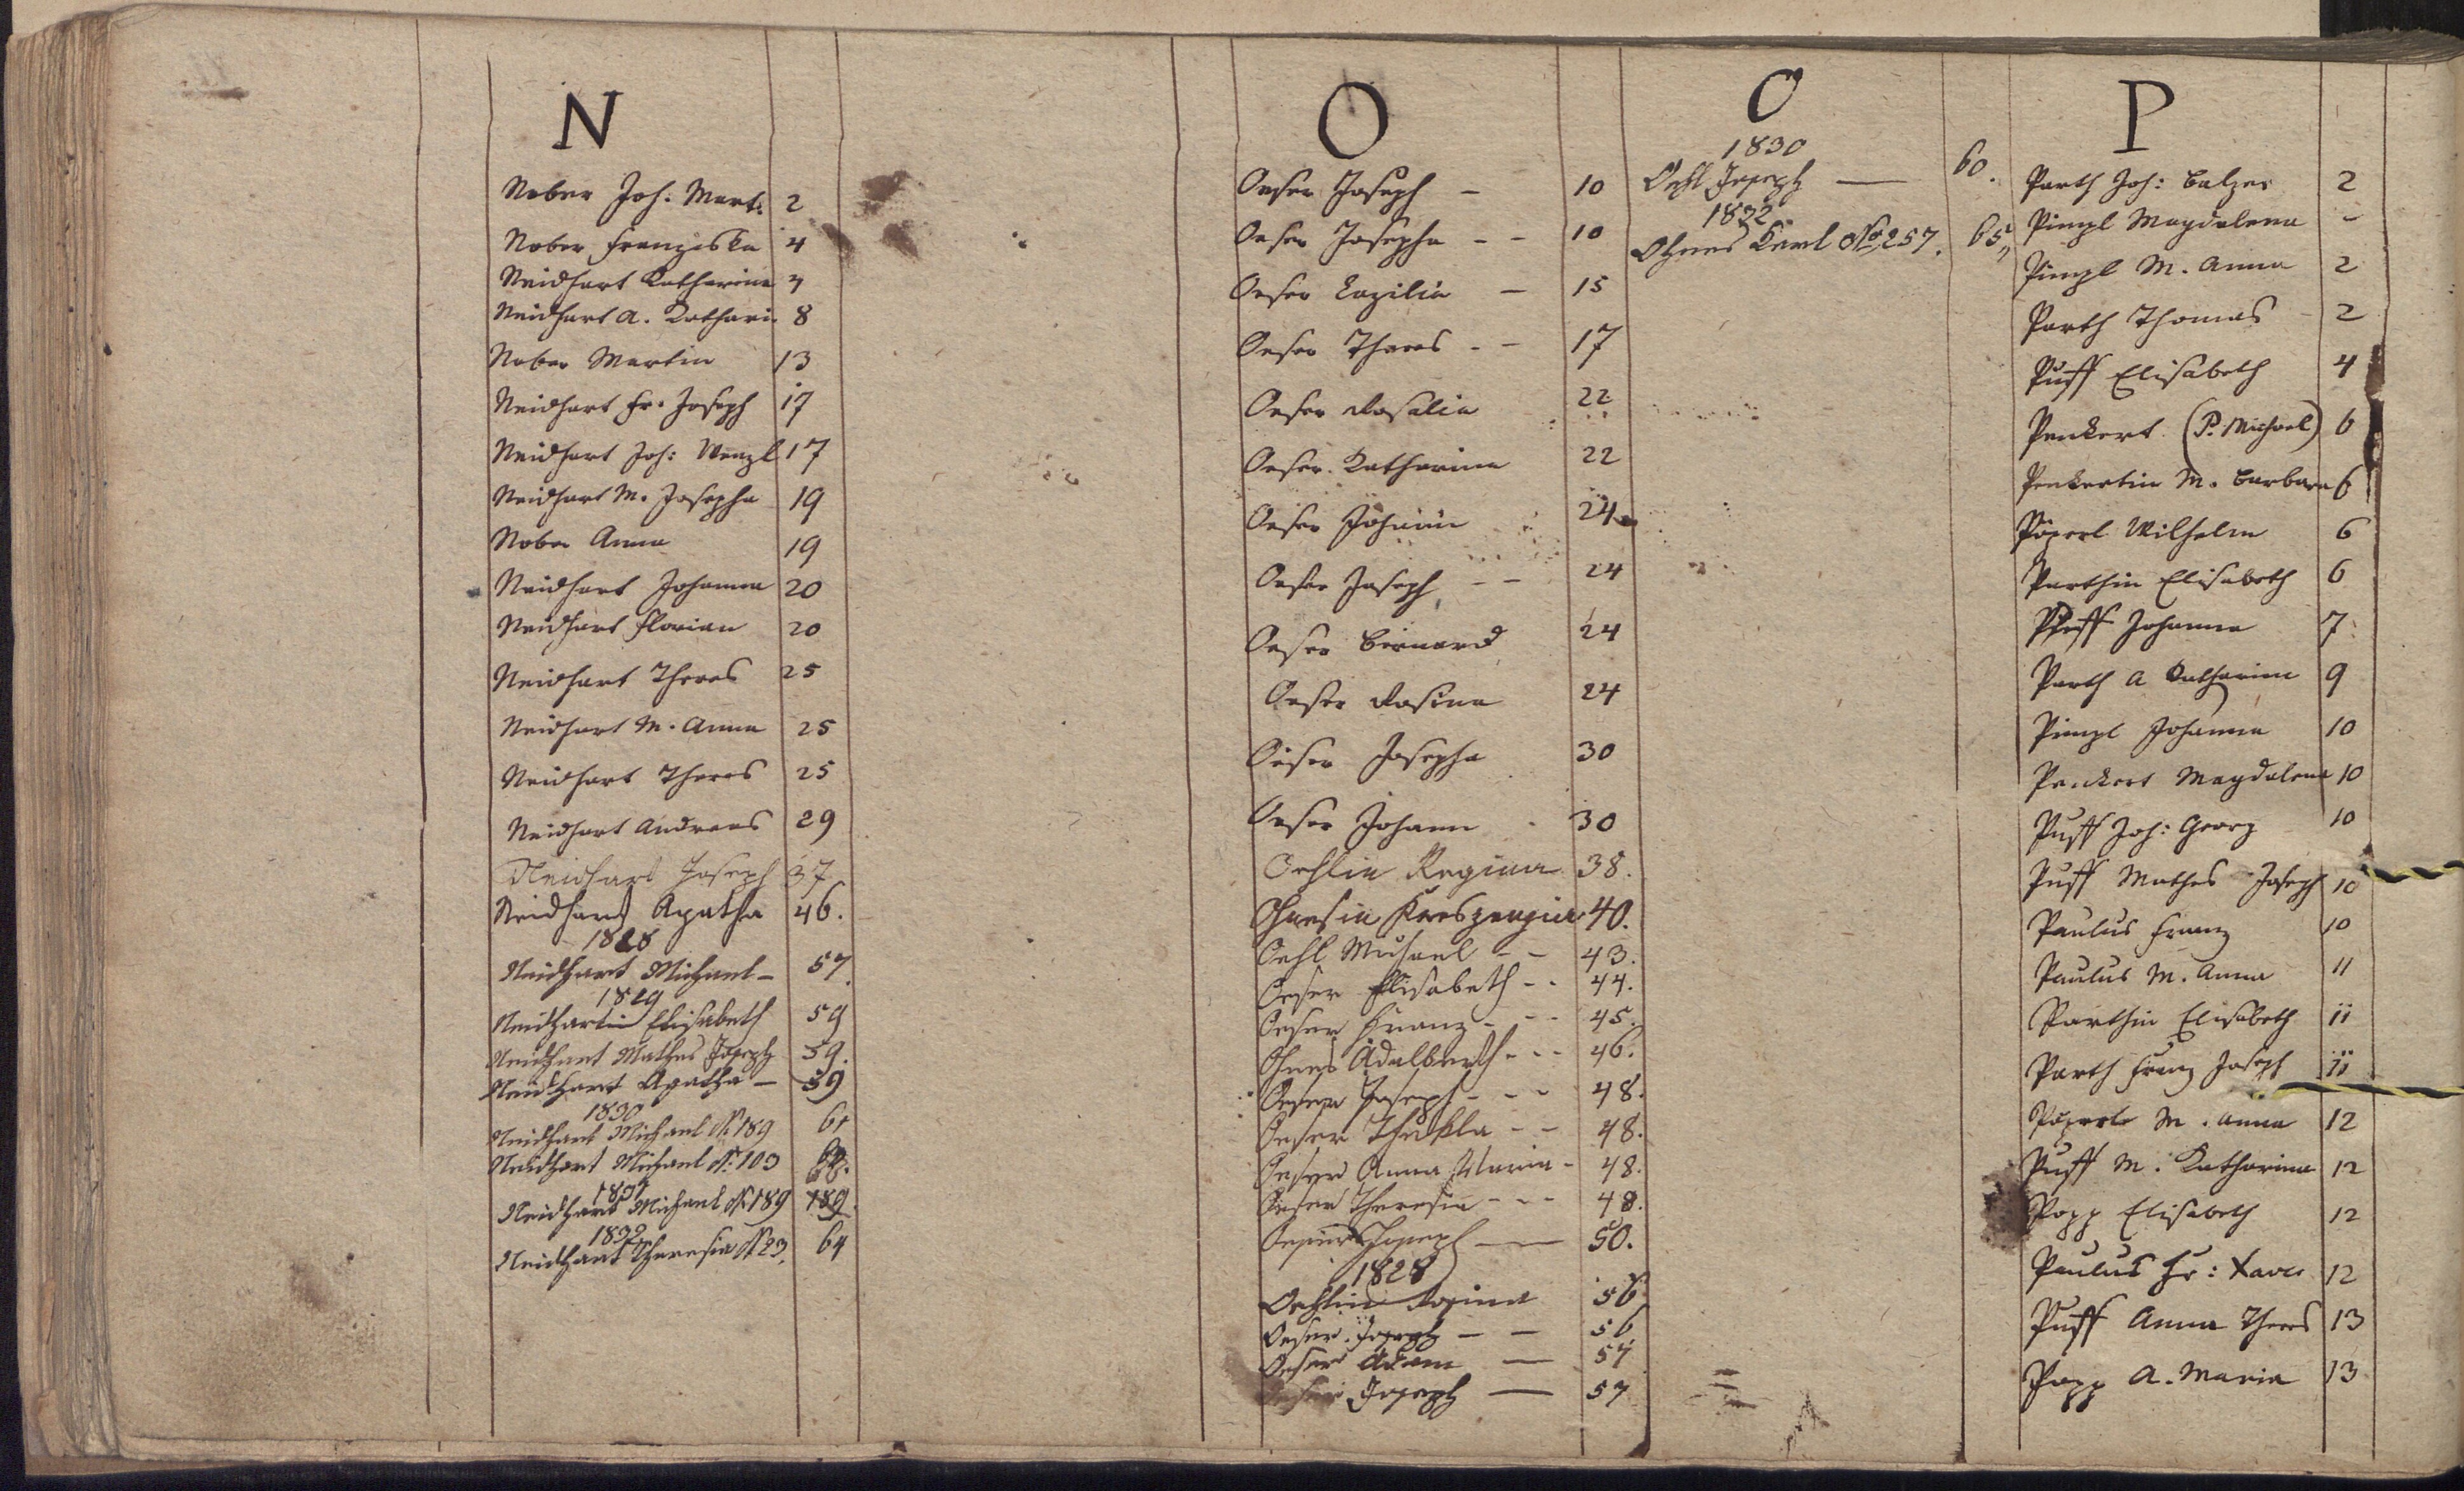 N
Nober Joh: Mart: 2
Nober Franziska 4
Neidhart Katharina 7
Neidhart A. Kathari: 8
Nober Martin 13
Neidhart Fr. Joseph 17
Neidhart Joh: Wenzl 17
Neidhart M. Josepha 19
Nober Anna 19
Neidhart Johanna 20
Neidhart Florian 20
Neidhart Theres 25
Neidhart M. Anna 25
Neidhart Theres 25
Neidhart Andreas 29
Neidhart Joseph 37
Neidhart Agatha 46.
1828
Neidhart Michael - 57.
1829
Neidhartin Elisabeth 59
Neidhart Mathes Joseph 59.
Neidhart Agatha - 59
1830
Neidhart Michael N: 189 61
Neidhart Michael N: 103
1831
Neidhart Michael N: 189 189.
1832
Neidhart Theresia N: 23. 64
O
Oeser Joseph - 10
Oeser Josepha - - 10
Oeser Cazilia - 15
Oeser Theres - - 17
Oeser Rosalia 22
Oeser Katharina 22
Oeser Johann 24
Oeser Joseph - - 24
Oeser Bernard 24
Oeser Rosina 24
Oeser Josepha 30
Oeser Johann 30
Oehlin Regina 38.
Ohnesin Kreszenzia 40.
Oehl Michael - - 43.
Oeser Elisabeth - - 44.
Oeser Franz - - - 45.
Ohnes Adalberth - - - 46.
Oeser Joseph - - - 48.
Oeser Thekla - - 48.
Oeser Anna Maria - 48.
Oeser Theresia - - - 48.
Oeser Joseph — 50.
1828
Oehlin Rosina 56
Oeser Joseph - - 56
Oeser Adam — 57
Oeser Joseph — 57
O
1830
Oehl Joseph — 60.
1832
Ohnes Karl No 257. 65
P
Parth Joh: Balzer 2
Pimpl Magdalena -
Pimpl M. Anna 2
Parth Thomas 2
Puff Elisabeth 4
Penkert (P. Michael) 6
Penkertin M. Barbara 6
Pöperl Wilhelm 6
Parthin Elisabeth 6
Puff Johanna 7
Parth A Katharina 9
Pimpl Johanna 10
Penkert Magdalena 10
Puff Joh: Georg 10
Puff Mathes Joseph 10
Paulus Franz 10
Paulus M. Anna 11
Parthin Elisabeth 11
Parth Franz Joseph 11
Pöperl M. Anna 12
Puff M. Katharina 12
Popp Elisabeth 12
Paulus Fr: Xaver 12
Puff Anna Theres 13
Popp A. Maria 13